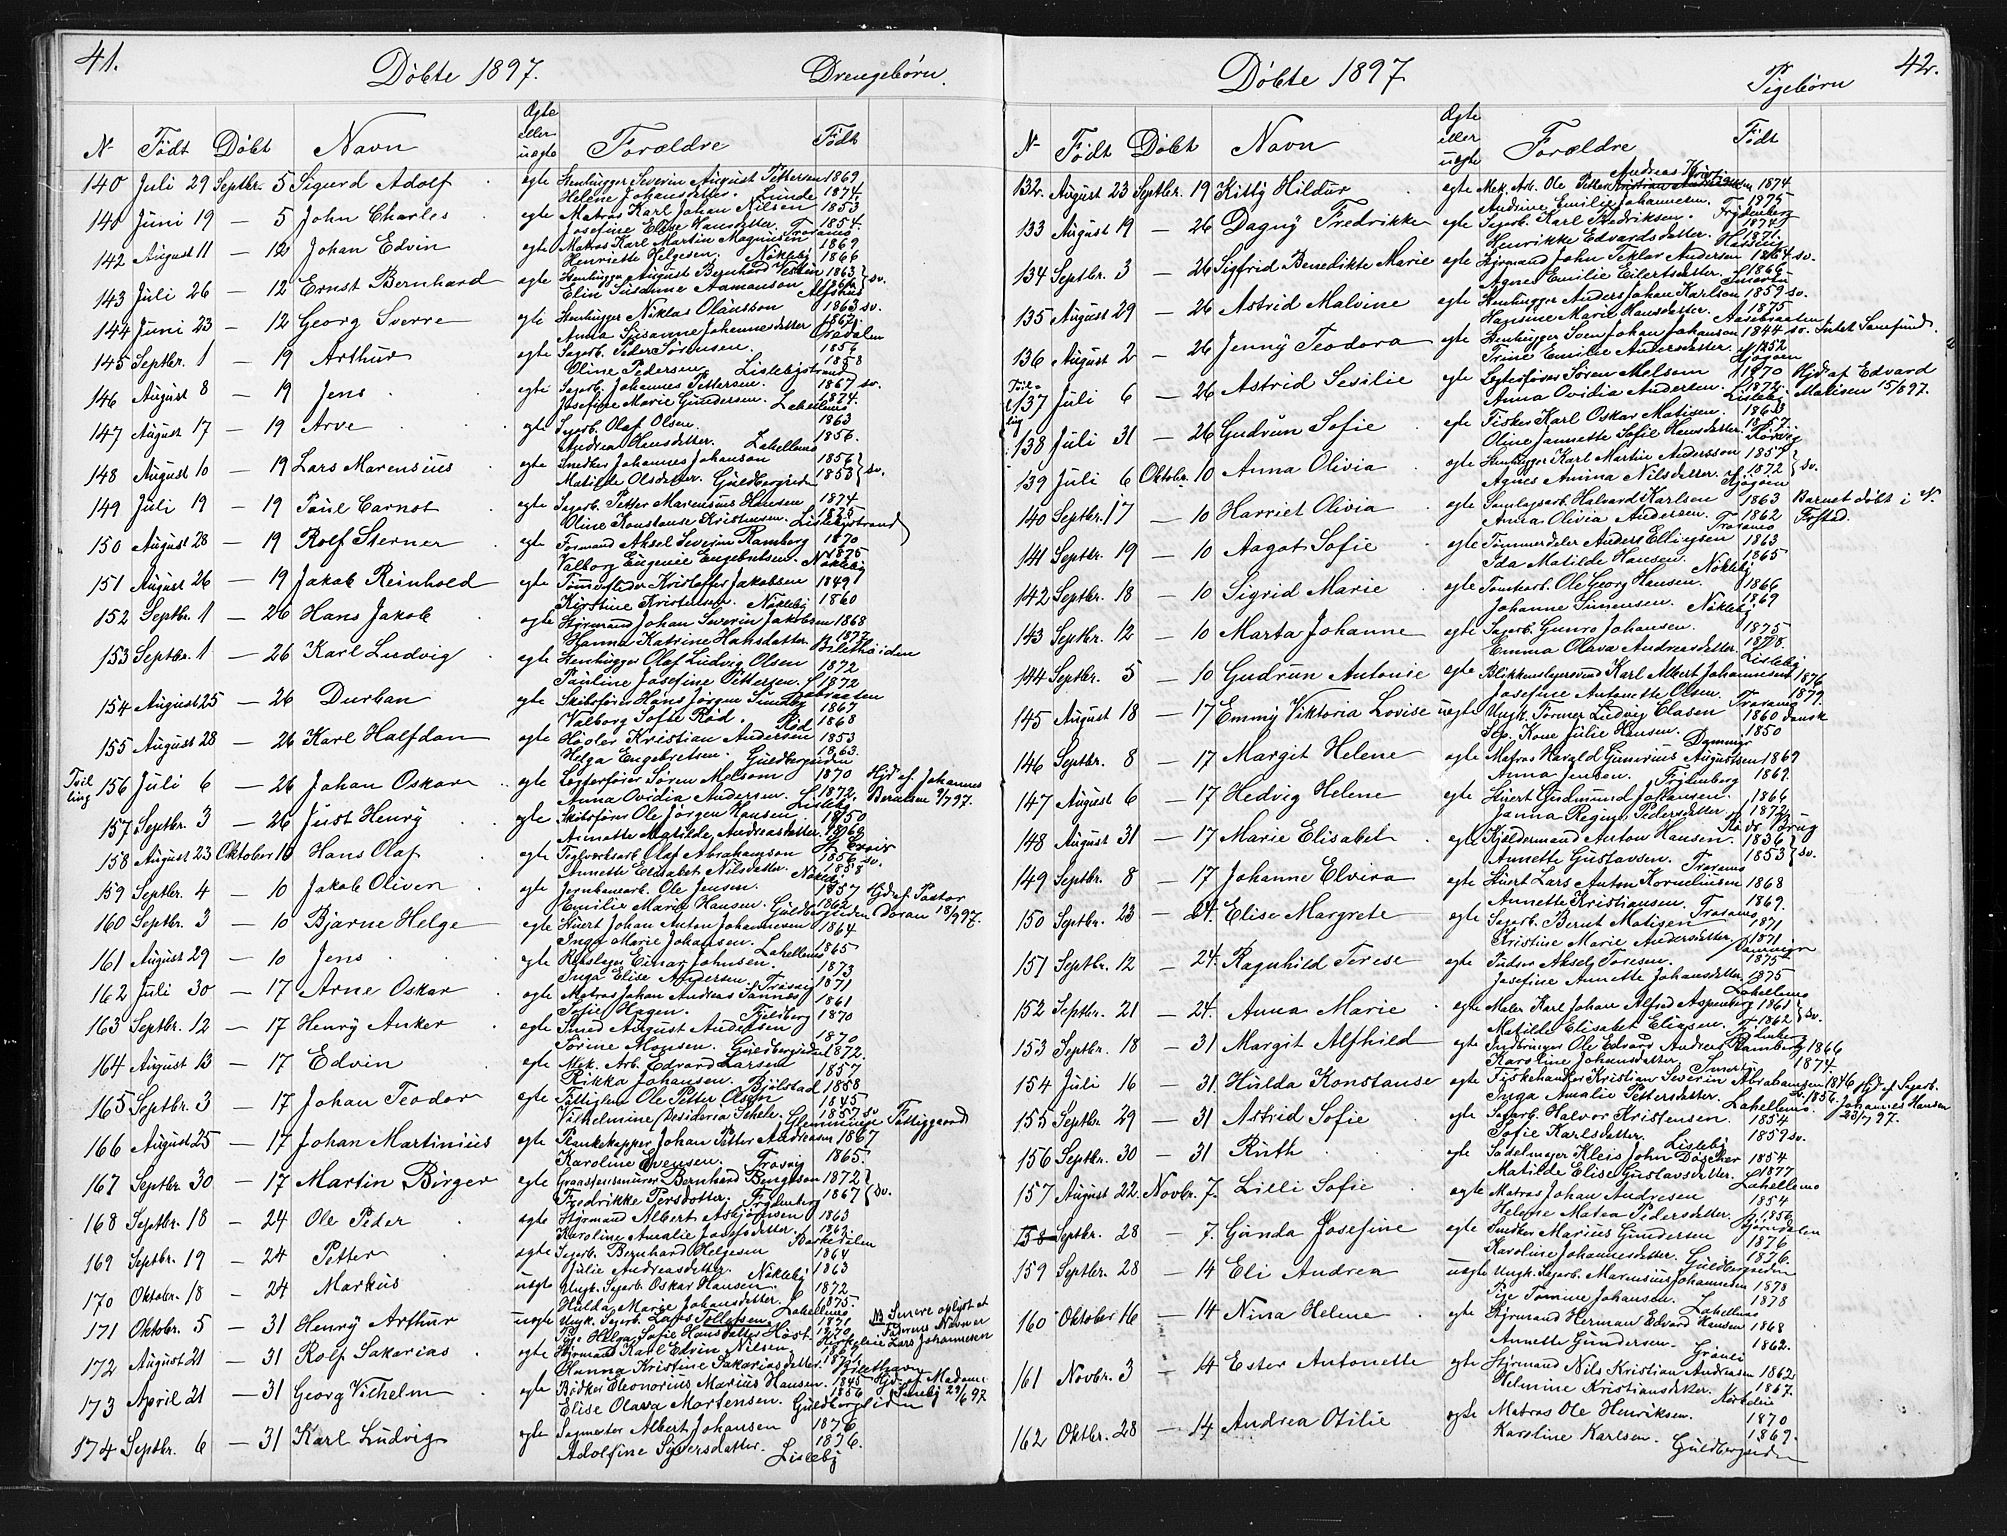 41.
Döbte 1897.
Drengebørn.
N Födt Döbt Navn Ægte eller uægte Forældre Födt
140 Juli 29 Septbr. 5 Sigurd Adolf ægte Stenhugger Severin August Pettersen 1869
Helene Johansdatter. Lunde 1874.
140 Juni 19 — 5 John Charles ægte Matros Karl Johan Nilsen 1853
Josefine Elise Hansdatter. Trosanes 1854.
142 August 11 — 12 Johan Edvin ægte Matros Karl Martin Magnusen 1869
Henriette Helgesen. Nökleby 1866
143 Juli 26 — 12 Ernst Bernhard ægte Stenhugger August Bernhard 1863 sv.
Elin Susanne Aamanson
144 Juni 23 — 12 Georg Sverre ægte Stenhugger Niklas Olausson 1863 sv.
Anna Susanne Johannesdatter 1862.
145 Septbr. 1 — 19 Arthur ægte Sagarb. Peder Sörensen. 1856
Oline Pedersen. Lislebystrand 1858
146 August 8 — 19 Jens ægte Sagarb. Johannes Pettersen. 1867 sv.
Josefine Marie Gundersen. Lahellemo 1874.
147 August 17 — 19 Arve ægte Sagarb. Olaf Olsen. 1863
Andrea Hansdatter. Lahellemo 1856.
148 August 10 — 19 Lars Marensius ægte Snedker Johannes Johanson 1856
Matilde Olsdatter. Guldbergsiden 1853 sv.
149 Juli 19 — 19 Paul Carnot ægte Sagarb. Petter Marensius Hansen 1874
Oline Konstanse Kristensen. Lislebystrand 1875
150 August 28 — 19 Rolf Sterner ægte Formand Aksel Severin Ramberg 1870
Valborg Eugenie Engebretsen. Nökleby 1875
151 August 26 — 19 Jakob Reinhold ægte Kristoffer Jakobsen 1849
Kirstine Kristensen. Nökleby 1860
152 Septbr. 1 — 26 Hans Jakob ægte Styrmand Johan Severin Jakobsen 1868
Hanna Katrine Hansdatter. 1872
153 Septbr. 1 — 26 Karl Ludvig ægte Stenhugger Olaf Ludvig Olsen 1872
Pauline Josefine Pettersen. 1872
154 August 25 — 26 Durban ægte Skibsförer Hans Jörgen Sundby 1867
Valborg Sofie Röd. Röd 1868
155 August 28 — 26 Karl Halfdan ægte Högler Kristian Andersen 1853
Helga Engebretsen. Guldbergsiden 1863.
Tvilling 156 Juli 6 — 26 Johan Oskar ægte Legterförer Sören Melsom 1870 Hjd. af Johannes
Anna Ovidia Andersen. Lisleby 1872. Berntsen 9/7 97.
157 Septbr. 3 — 26 Just Henry ægte Skibsförer Ole Jörgen Hansen 1850
Annette Matilde Andreasdatter 1860
158 August 23 Oktober 10 Hans Olaf ægte Teglverksarb. Olaf Abrahamson 1856 sv.
Annette Elisabet Nilsdatter. 1858
159 Septbr. 4 — 10 Jakob Oliver ægte Jernbanearb. Ole Jensen. 1857 Hjd. af Pastor
Emilie Marie Hansen. Guldbergsiden 1862 18/9 97.
160 Septbr. 3 — 10 Bjarne Helge ægte Huert Johan Anton Johannesen 1864
Inga Marie Johansen. Lahellemo 1865
161 August 29 — 10 Jens ægte Rebslager Einar Johnsen. 1873
Inga Elise Andersen. Trosvig 1871
162 Juli 30 — 17 Arne Oskar ægte Matros Johan Andreas Sannes 1861
Sofie Hagen. Fjeldberg 1870
163 Septbr. 12 — 17 Henry Anker ægte Smed August Andersen 1870
Sörine Monsen. Guldbergsiden 1872.
164 August 13 — 17 Edvin ægte Mek. Arb. Edvard Larsen 1857
Rikka Johansen. Bjölstad 1858
165 Septbr. 3 — 17 Johan Teodor ægte Fattiglem Ole Petter Olsen 1845
Vilhelmine Desideria Schele. Glemminge Fattiggaard 1857 sv.
166 August 25 — 17 Johan Martinius ægte Plankekapper Johan Petter Andreasen 1867
Karoline Svensen. Trosvig 1865.
167 Septbr. 30 — 17 Martin Birger ægte Graastensmurer Bernhard Bengtson 1872
Fredrikke Persdotter. Frydenberg 1867 sv.
168 Septbr. 18 — 24 Ole Peder ægte Styrmand Albert Asbjörnsen 1863
Karoline Amalie Josefsdatter. 1862.
169 Septbr. 19 — 24 Petter ægte Sagarb. Bernhard Helgesen 1864
Julie Andreasdatter. Nökleby 1863
170 Oktobr. 18 — 24 Markus uægte Ungk. Sagarb. Oskar Hansen 1872
Hulda Marie Johansdatter. Lahellemo 1875.
171 Oktobr. 5 — 31 Henry Arthur uægte Ungk. Sagarb. Lars Tollefsen. 1871 NB Senere oplyst at
Pige Helga Sofie Hansdatter Höst. 1870. Faderens Navn er
172 August 21 — 31 Rolf Sakarias ægte Styrmand Karl Edvin Nilsen. Lars Johannesen
Hanna Kristine Sakariasdatter. 1871
173 April 21 — 31 Georg Vilhelm ægte Bödker Eleonorius Marius Hansen. 1845 Hjd. af Madame
Elise Olava Mortensen. Guldbergsiden 1856 Sundby 29/6 97.
174 Septbr. 6 — 31 Karl Ludvig ægte Sagmester Albert Johansen 1876
Adolfine Syversdatter. Lisleby 1876.
42.
Döbte 1897
Pigebørn
N Födt Döbt Navn Ægte eller uægte Forældre Födt
132. August 23 Septbr. 19 Kitty Hildur ægte Mek. Arb. Ole Petter Andreas Kristian 1874
Andrine Emilie Johannesen. 1875
133 August 19 — 26 Dagny Fredrikke ægte Sagarb. Karl Fredriksen. Frydenberg 1874
Henrikke Edvardsdatter. 1871.
134 Septbr. 3 — 26 Sigfrid Benedikte Marie ægte Styrmand John Teklar Andersen 1864 sv.
Agnes Emilie Eilertsdatter. 1866
135 August 29 — 26 Astrid Malvine ægte Stenhugger Anders Johan Karlson 1859 sv.
Hansine Marie Hansdatter. 1875
136 August 2 — 26 Jenny Teodora ægte Stenhugger Sven Johan Johanson 1844 sv. Intet Samfund.
Trine Emilie Andersdatter. 1852
Tvilling 137 Juli 6 — 26 Astrid Sesilie ægte Legterförer Sören Melsom 1870 Hjd. af Edvard
Anna Ovidia Andersen. Lisleby 1872. Matisen 15/7 97.
138 Juli 31 — 26 Gudrun Sofie ægte Fisker Karl Oskar Matisen. 1863
Oline Jannette Sofie Hansdatter.
139 Juli 6 Oktobr. 10 Anna Olivia ægte Stenhugger Karl Martin Andersson 1857
Agnes Amina Nilsdatter. 1872 sv.
140 Septbr. 17 — 10 Harriet Olivia ægte Halvard Karlsen 1863 Barnet döbt i N.
Anna Olivia Andersen. Trosanes 1862 Frstad.
141 Septbr. 19 — 10 Aagot Sofie ægte Tömmerdeler Anders Ellingsen 1863
Ida Matilde Hansen. Nökleby 1865
142 Septbr. 18 — 10 Sigrid Marie ægte Tomtearb. Ole Georg Hansen. 1866
Johanne Simensen. Nökleby 1869
143 Septbr. 12 — 10 Marta Johanne ægte Sagarb. Gunro Johansen. 1875
Emma Olava Andreasdatter. Lisleby
144 Septbr. 5 — 10 Gudrun Antonie ægte Blikkenslagersvend Karl Albert Johannesen 1876
Josefine Antonette Olsen. Trosvig 1879.
145 August 18 — 17 Emmy Viktoria Lovise uægte Ungk. Former Ludvig Clasen 1860 dansk
Sep. Kone Julie Hansen. 1850
146 Septbr. 8 — 17 Margit Helene ægte Matros Harald Gunerius Augustsen 1869
Anna Jensen. Frydenberg 1869.
147 August 6 — 17 Hedvig Helene ægte Huert Gudmund Johansen. 1866
Janna Regine Pedersdatter 1872.
148 August 31 — 17 Marie Elisabet ægte Kjældermand Anton Hansen. 1836
Annette Gustavsen. Trosanes 1853 sv.
149 Septbr. 8 — 17 Johanne Elvira ægte Huert Lars Anton Korneliusen 1868
Annette Kristiansen. Trosanes 1869.
150 Septbr. 23 — 24. Elise Margrete ægte Sagarb. Bernt Matisen 1871
Kristine Marie Andersdatter. 1871
151 Septbr. 12 — 24. Ragnhild Terese ægte Pudser Aksel Toresen. 1875
Josefine Annette Johansdatter. Lahellemo 1875
152 Septbr. 21 — 24. Anna Marie ægte Maler Karl Johan Alfred Aspenberg 1861
Matilde Elisabet Eliasen. 1862 sv.
153 Septbr. 18 — 31 Margit Alfhild ægte Indbringer Ole Edvard Andreas Ramberg 1866
Karoline Johansdatter. 1874
154 Juli 16 — 31. Hulda Konstanse ægte Fiskehandler Kristian Severin Abrahamsen 1846 Hjd. af Sagarb.
Inga Amalie Pettersdatter. Lahellemo. sv. 1856. Johannes Hansen
155 Septbr. 29 — 31 Astrid Sofie ægte Sagarb. Halvor Kristensen. 1854 23/7 97.
Sofie Karlsdatter. Lisleby 1859 sv.
156 Septbr. 30 — 31 Ruth ægte Sadelmager Kleis John Döscher 1854
Matilde Elise Gustavsdatter. Lahellemo 1877
157 August 22. Novbr. 7. Lilli Sofie ægte Matros Johan Andresen 1854
Helene Matea Pedersdatter. 1856
158 Septbr. 28 — 7. Gunda Josefine ægte Snedker Marius Gundersen 1876
Karoline Johannesdatter. Guldbergsiden 1876.
159 Septbr. 28 — 14 Eli Andrea uægte Ungk. Sagarb. Marensius Johannesen 1878
Pige Tomine Johansen. Lahellemo 1878
160 Oktober 16 — 14 Nina Helene ægte Styrmand Herman Edvard Hansen 1868
Annette Gundersen. Grönli 1862.
161 Novbr. 3 — 14 Ester Antonette ægte Styrmand Nils Kristian Andreasen 1862
Helmine Kristiansdatter. 1867.
162 Oktbr. 28 — 14 Andrea Otilie ægte Matros Ole Henriksen. 1870
Karoline Karlsen. Guldbergsiden 1869.